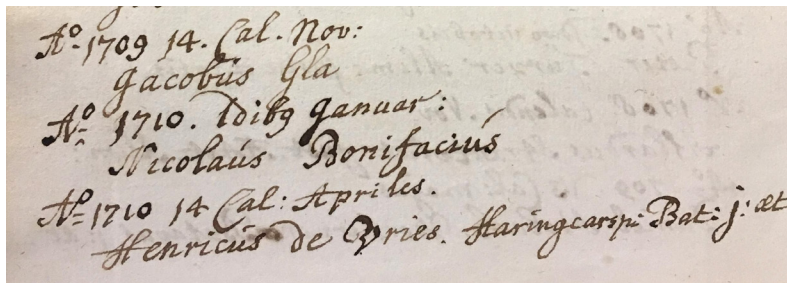 Aº. 1709 14. Cal. Nov:
Jacobús Gla
Aº 1710. Idibꝯ Januar:
Nicolaús Bonifaciús
Aº 1710 14 Cal: Apriles.
Henricús de Vries. Haringcarsp: Bat: j: æt